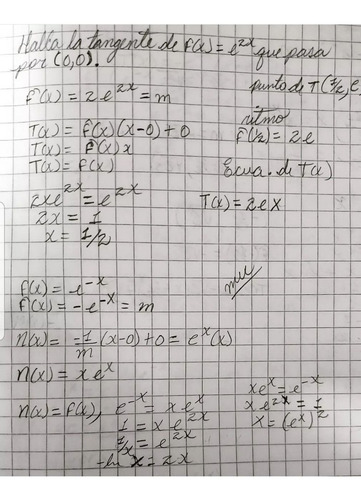 Halla la tangente de f(x) = e^{2x} que pasa
por (0,0).
f'(x) = 2e^{2x} = m
T(x) = f'(x)(x-0)+0
T(x) = f'(x)x
T(x) = f(x)
2xe^{2x} = e^{2x}
2x = 1
x = 1/2
punto de T(1/2, e
ritmo
f'(1/2) = 2e
Ecua. de T(x)
T(x) = 2ex
f(x) = e^{-x}
f'(x) = -e^{-x} = m
n(x) = -1/m (x-0)+0 = e^{x}(x)
n(x) = xe^{x}
n(x) = f(x), e^{-x} = xe^{x}
1 = xe^{2x}
1/x = e^{2x}
-ln x = 2x
xe^{x} = e^{-x}
xe^{2x} = 1
x = (e^{x})^{2}